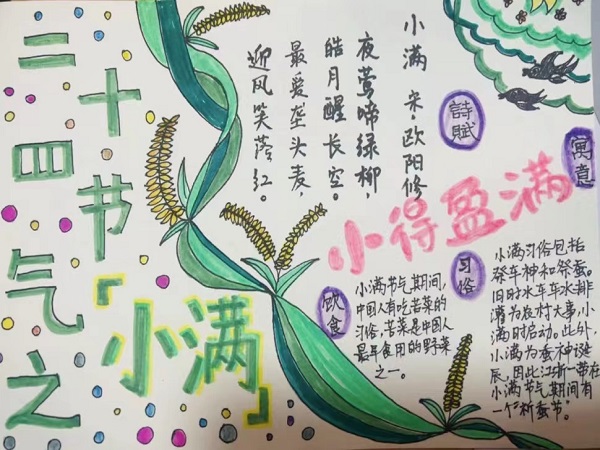 二十四节气之
「小满」
小满 宋·欧阳修
夜莺啼绿柳，
皓月醒长空。
最爱垄头麦，
迎风笑落红。
詩賦
寓意
小得盈满
习俗
饮食
小满节气期间，
中国人有吃苦菜的
习俗，苦菜是中国人
最早食用的野菜
之一。
小满习俗包括
祭车神和祭蚕。
旧时水车车水排
涝为农村大事，小
满时启动。此外，
小满为蚕神诞
辰，因此江浙一带在
小满节气期间有
一个祈蚕节。